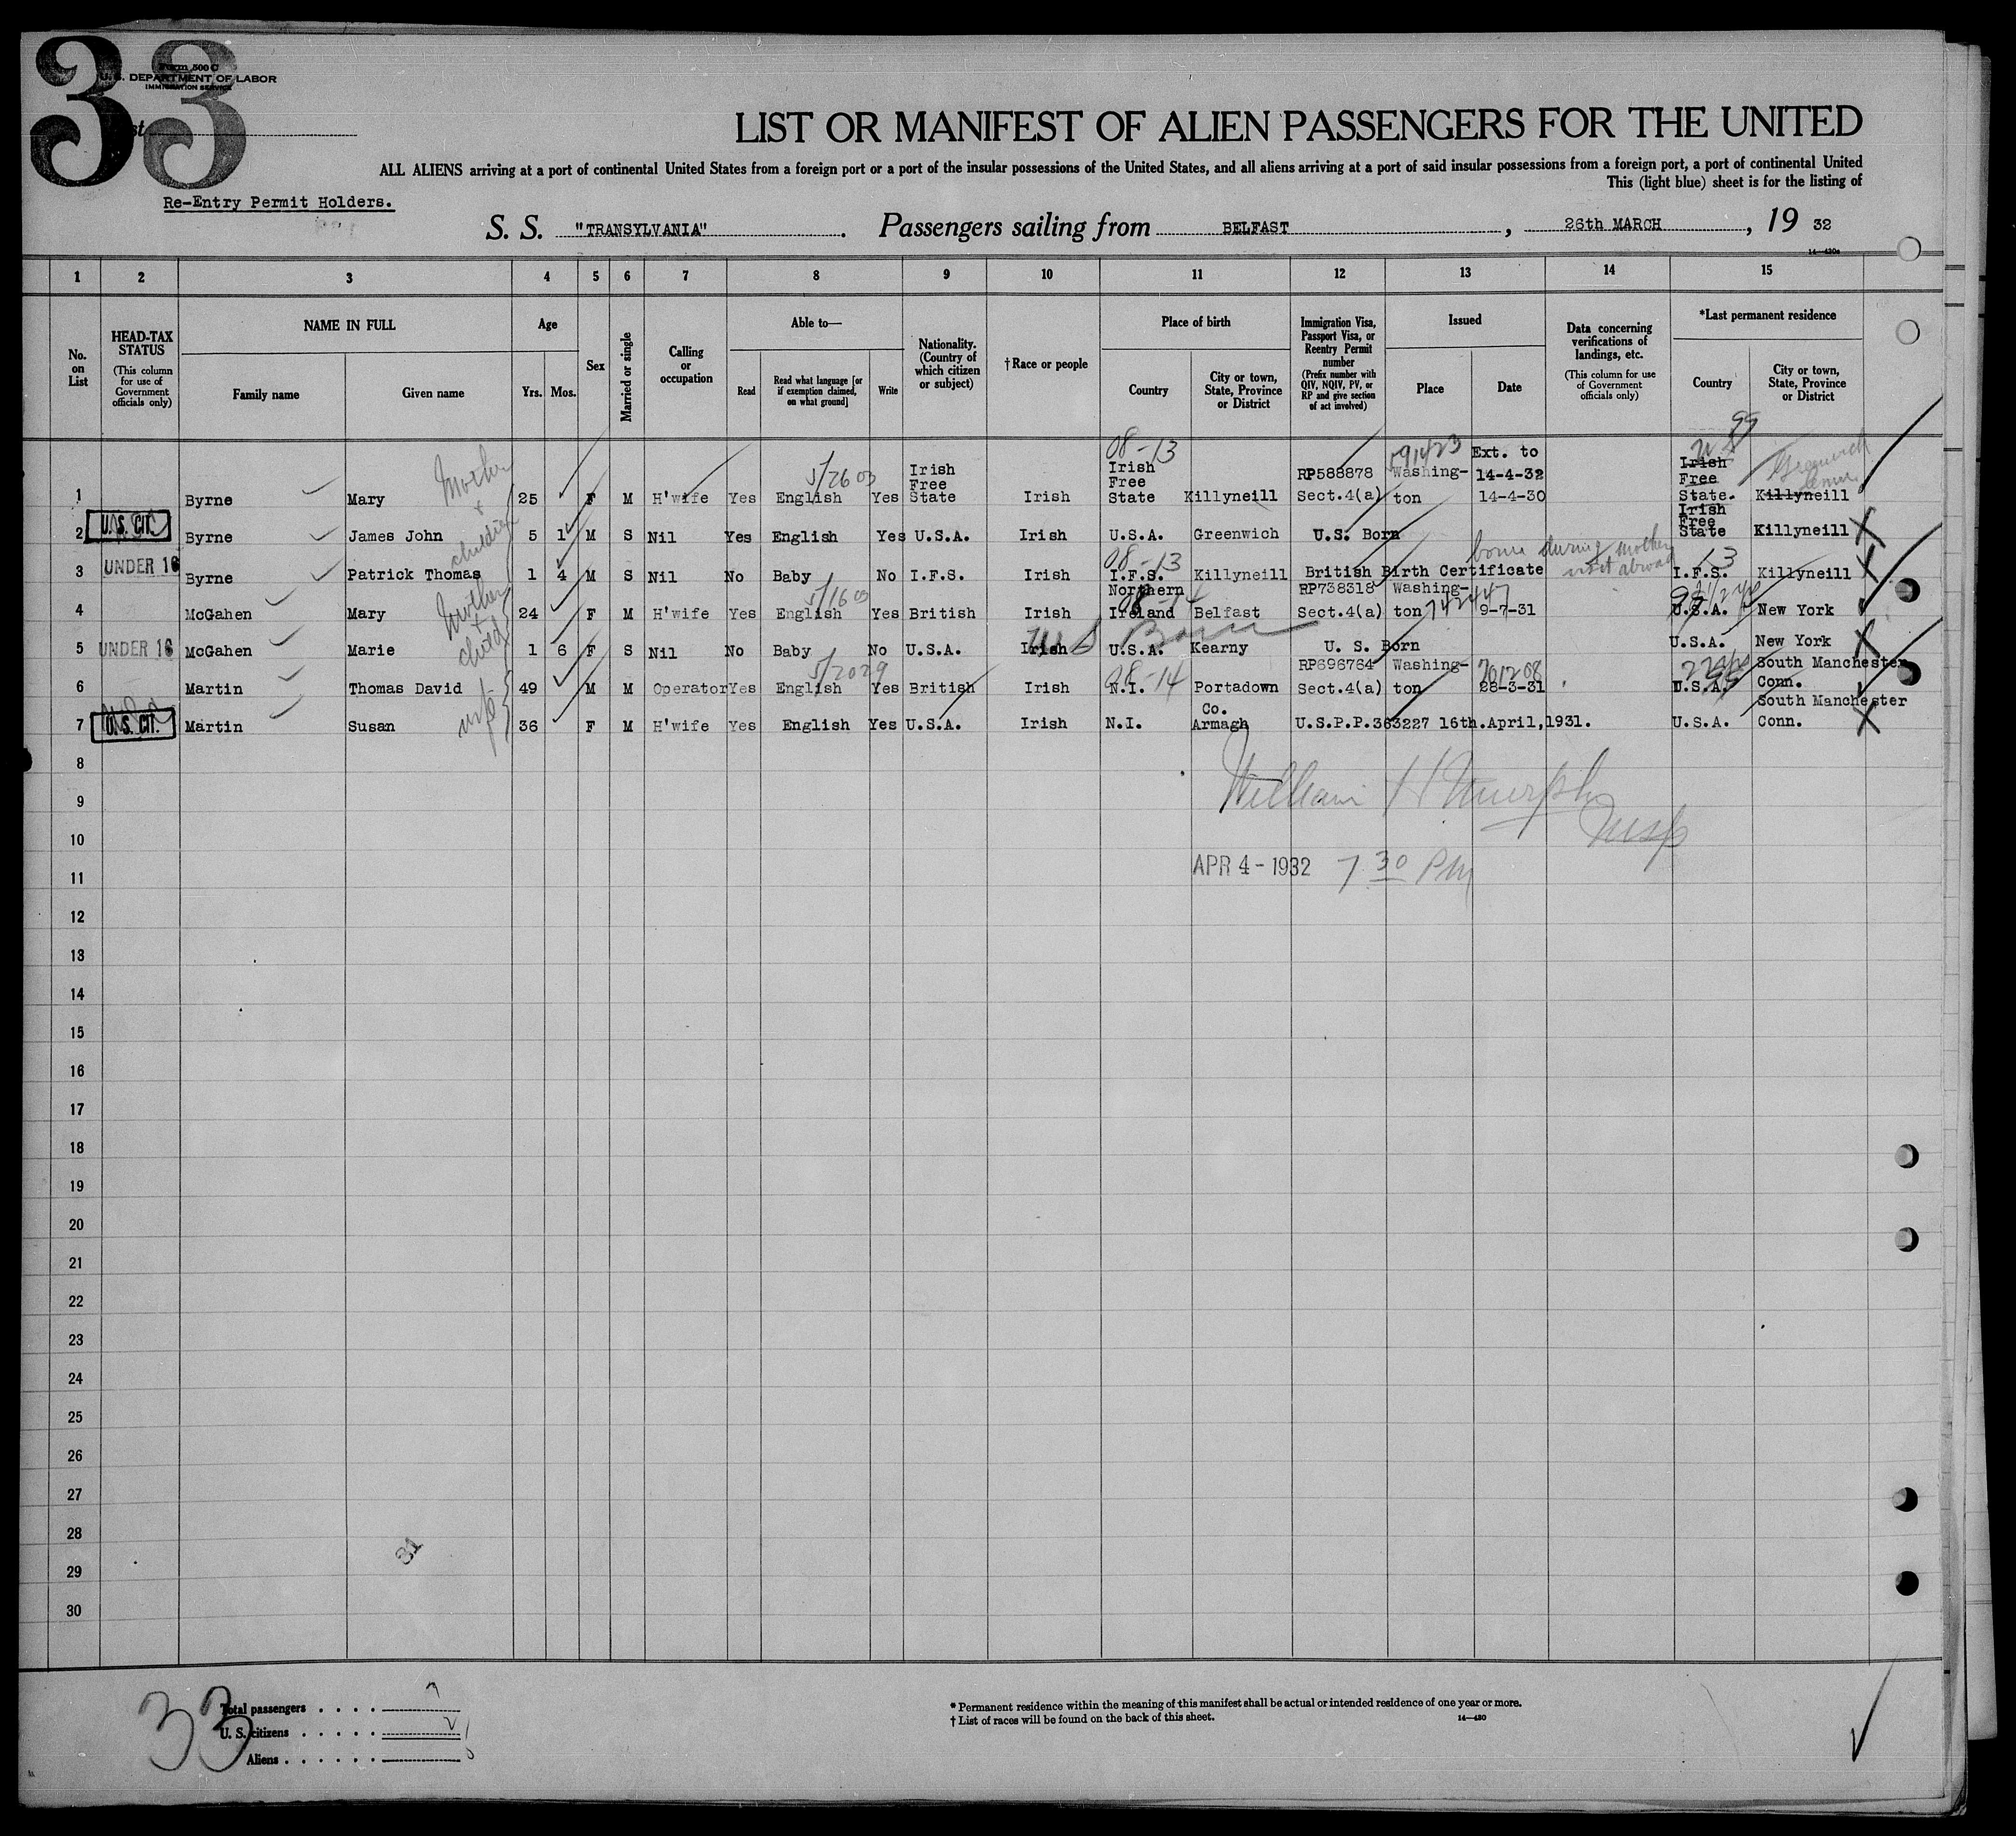 33
Form 500 C
U. S. DEPARTMENT OF LABOR
IMMIGRATION SERVICE
LIST OR MANIFEST OF ALIEN PASSENGERS FOR THE UNITED
ALL ALIENS arriving at a port of continental United States from a foreign port or a port of the insular possessions of the United States, and all aliens arriving at a port of said insular possessions from a foreign port, a port of continental United
This (light blue) sheet is for the listing of
Re-Entry Permit Holders.
S. S. "TRANSYLVANIA". Passengers sailing from BELFAST, 26th MARCH, 19 32
14—430a
1 2 3 4 5 6 7 8 9 10 11 12 13 14 15
No. on List
HEAD-TAX STATUS
(This column for use of Government officials only)
NAME IN FULL
Family name
Given name
Age
Yrs. Mos.
Sex
Married or single
Calling or occupation
Able to—
Read
Read what language [or if exemption claimed, on what ground]
Write
Nationality. (Country of which citizen or subject)
†Race or people
Place of birth
Country
City or town, State, Province or District
Immigration Visa, Passport Visa, or Reentry Permit number
(Prefix number with QIV, NQIV, PV, or RP and give section of act involved)
Issued
Place
Date
Data concerning verifications of landings, etc.
(This column for use of Government officials only)
*Last permanent residence
Country
City or town, State, Province or District
1 Byrne Mary Mother 25 F M H'wife Yes English 5/26 03 Yes Irish Free State Irish 08-13 Irish Free State Killyneill RP588878 Sect.4(a) Washington 591423 Ext. to 14-4-32 14-4-30 99 Irish Free State. Killyneill Greenwich
2 U.S. CIT. Byrne James John children 5 1 M S Nil Yes English Yes U.S.A. Irish U.S.A. Greenwich U.S. Born Irish Free State Killyneill
3 UNDER 16 Byrne Patrick Thomas 1 4 M S Nil No Baby No I.F.S. Irish 08-13 I.F.S. Killyneill British Birth Certificate born during mother visit abroad 13 I.F.S. Killyneill
4 McGahen Mary Mother 24 F M H'wife Yes English 5/16 03 Yes British Irish Northern Ireland 08-14 Belfast RP738318 Sect.4(a) Washington 742447 9-7-31 U.S.A. New York
5 UNDER 16 McGahen Marie child 1 6 F S Nil No Baby No U.S.A. Irish US Born U.S.A. Kearny U. S. Born U.S.A. New York
6 Martin Thomas David 49 M M Operator Yes English 5/20 29 Yes British Irish 08-14 N.I. Portadown RP696764 Sect.4(a) Washington 701208 28-3-31 U.S.A. South Manchester Conn.
7 U.S. CIT. Martin Susan wife 36 F M H'wife Yes English Yes U.S.A. Irish N.I. Co. Armagh U.S.P.P.363227 16th.April,1931. U.S.A. South Manchester Conn.
8
William H Murphy
9
Insp
10
11 APR 4 - 1932 7 30 PM
12
13
14
15
16
17
18
19
20
21
22
23
24
25
26
27
28
29
31
30
33
Total passengers . . . . 7
U. S. citizens . . . . .
Aliens . . . . . .
* Permanent residence within the meaning of this manifest shall be actual or intended residence of one year or more.
† List of races will be found on the back of this sheet.
14—430